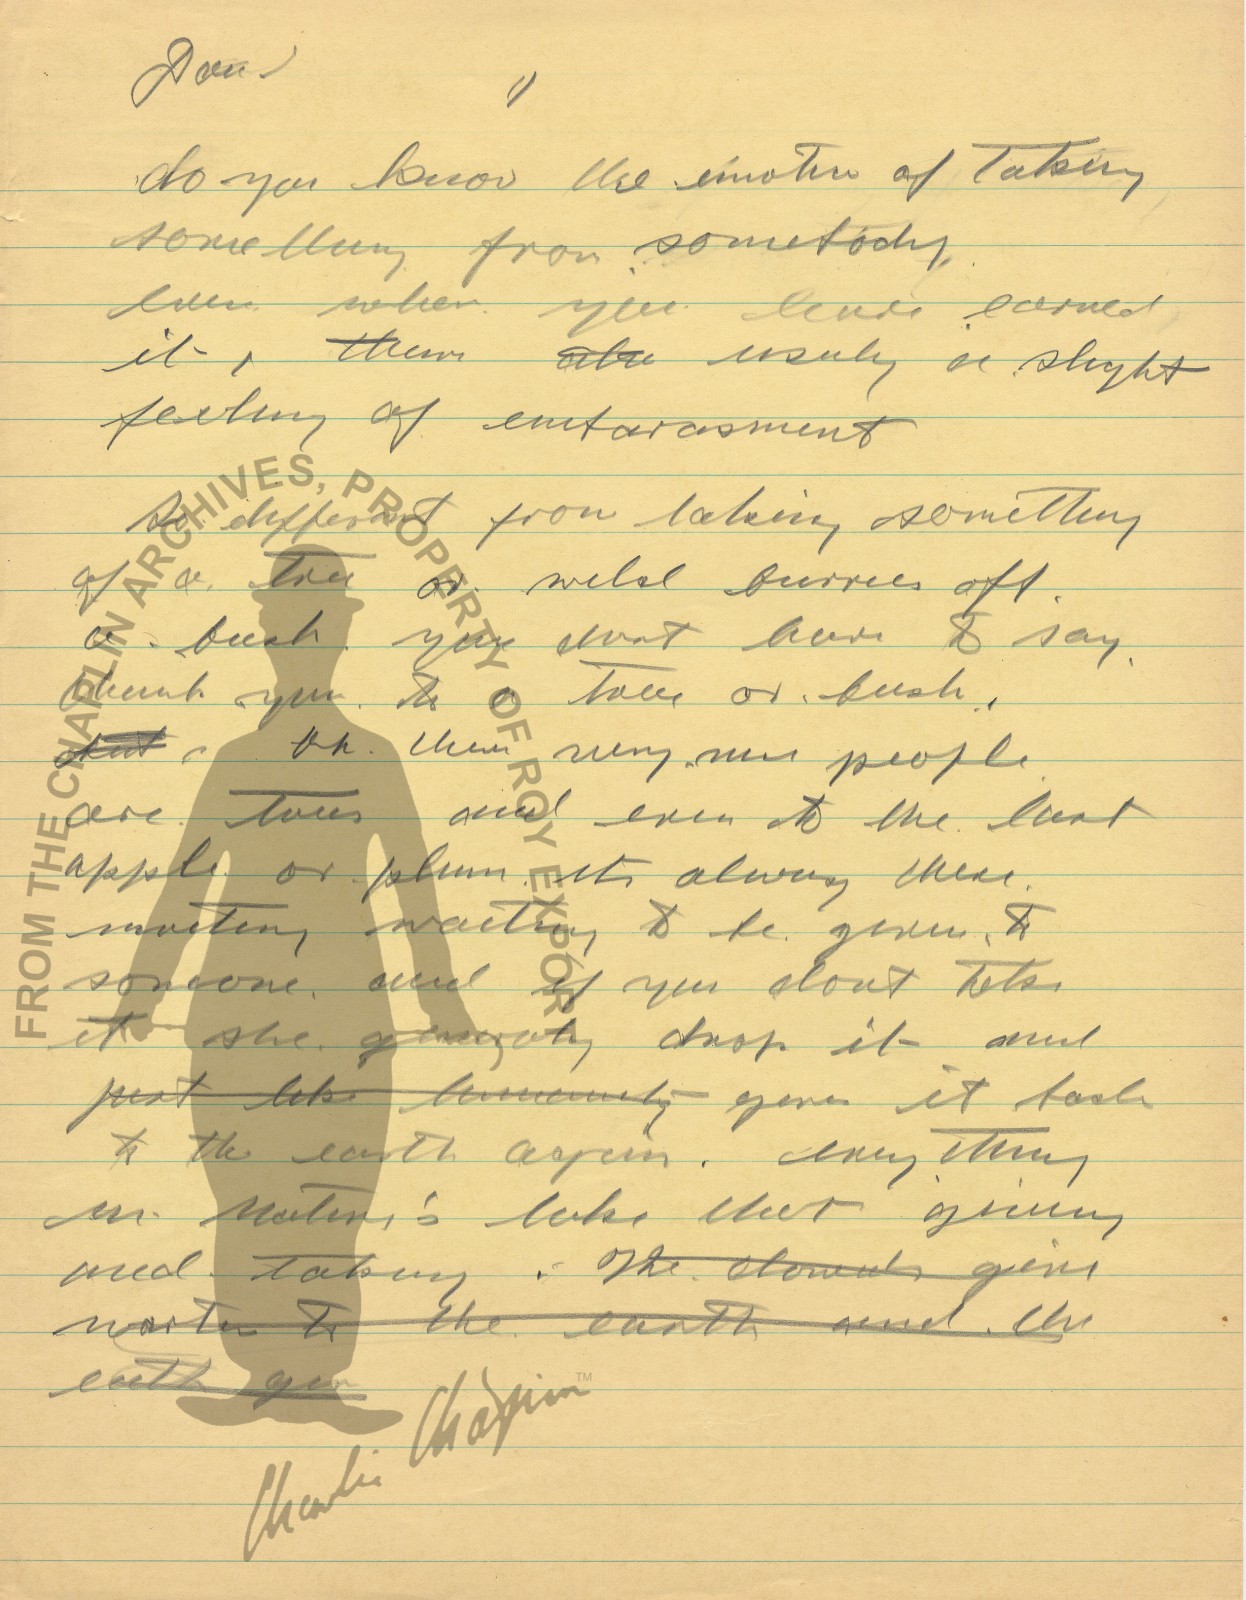 do you know the emotion of taking
something from somebody,
even when you have earned
it, there usualy a slight
feeling of embarasment
So different from taking something
of a tree or wild burries off
a bush you dont have to say
thank you to a tree or bush,
but Oh then very people
are trees and even to the last
apple or plum its always there
waiting to be given to
someone and if you dont take
it she drop it and
just like humanity gives it back
to the earth again. everything
in Nature's like that giving
and taking. The clouds give
water to the earth and the
earth give
FROM THE CHAPLIN ARCHIVES, PROPERTY OF ROY EXPORT
Charlie Chaplin™